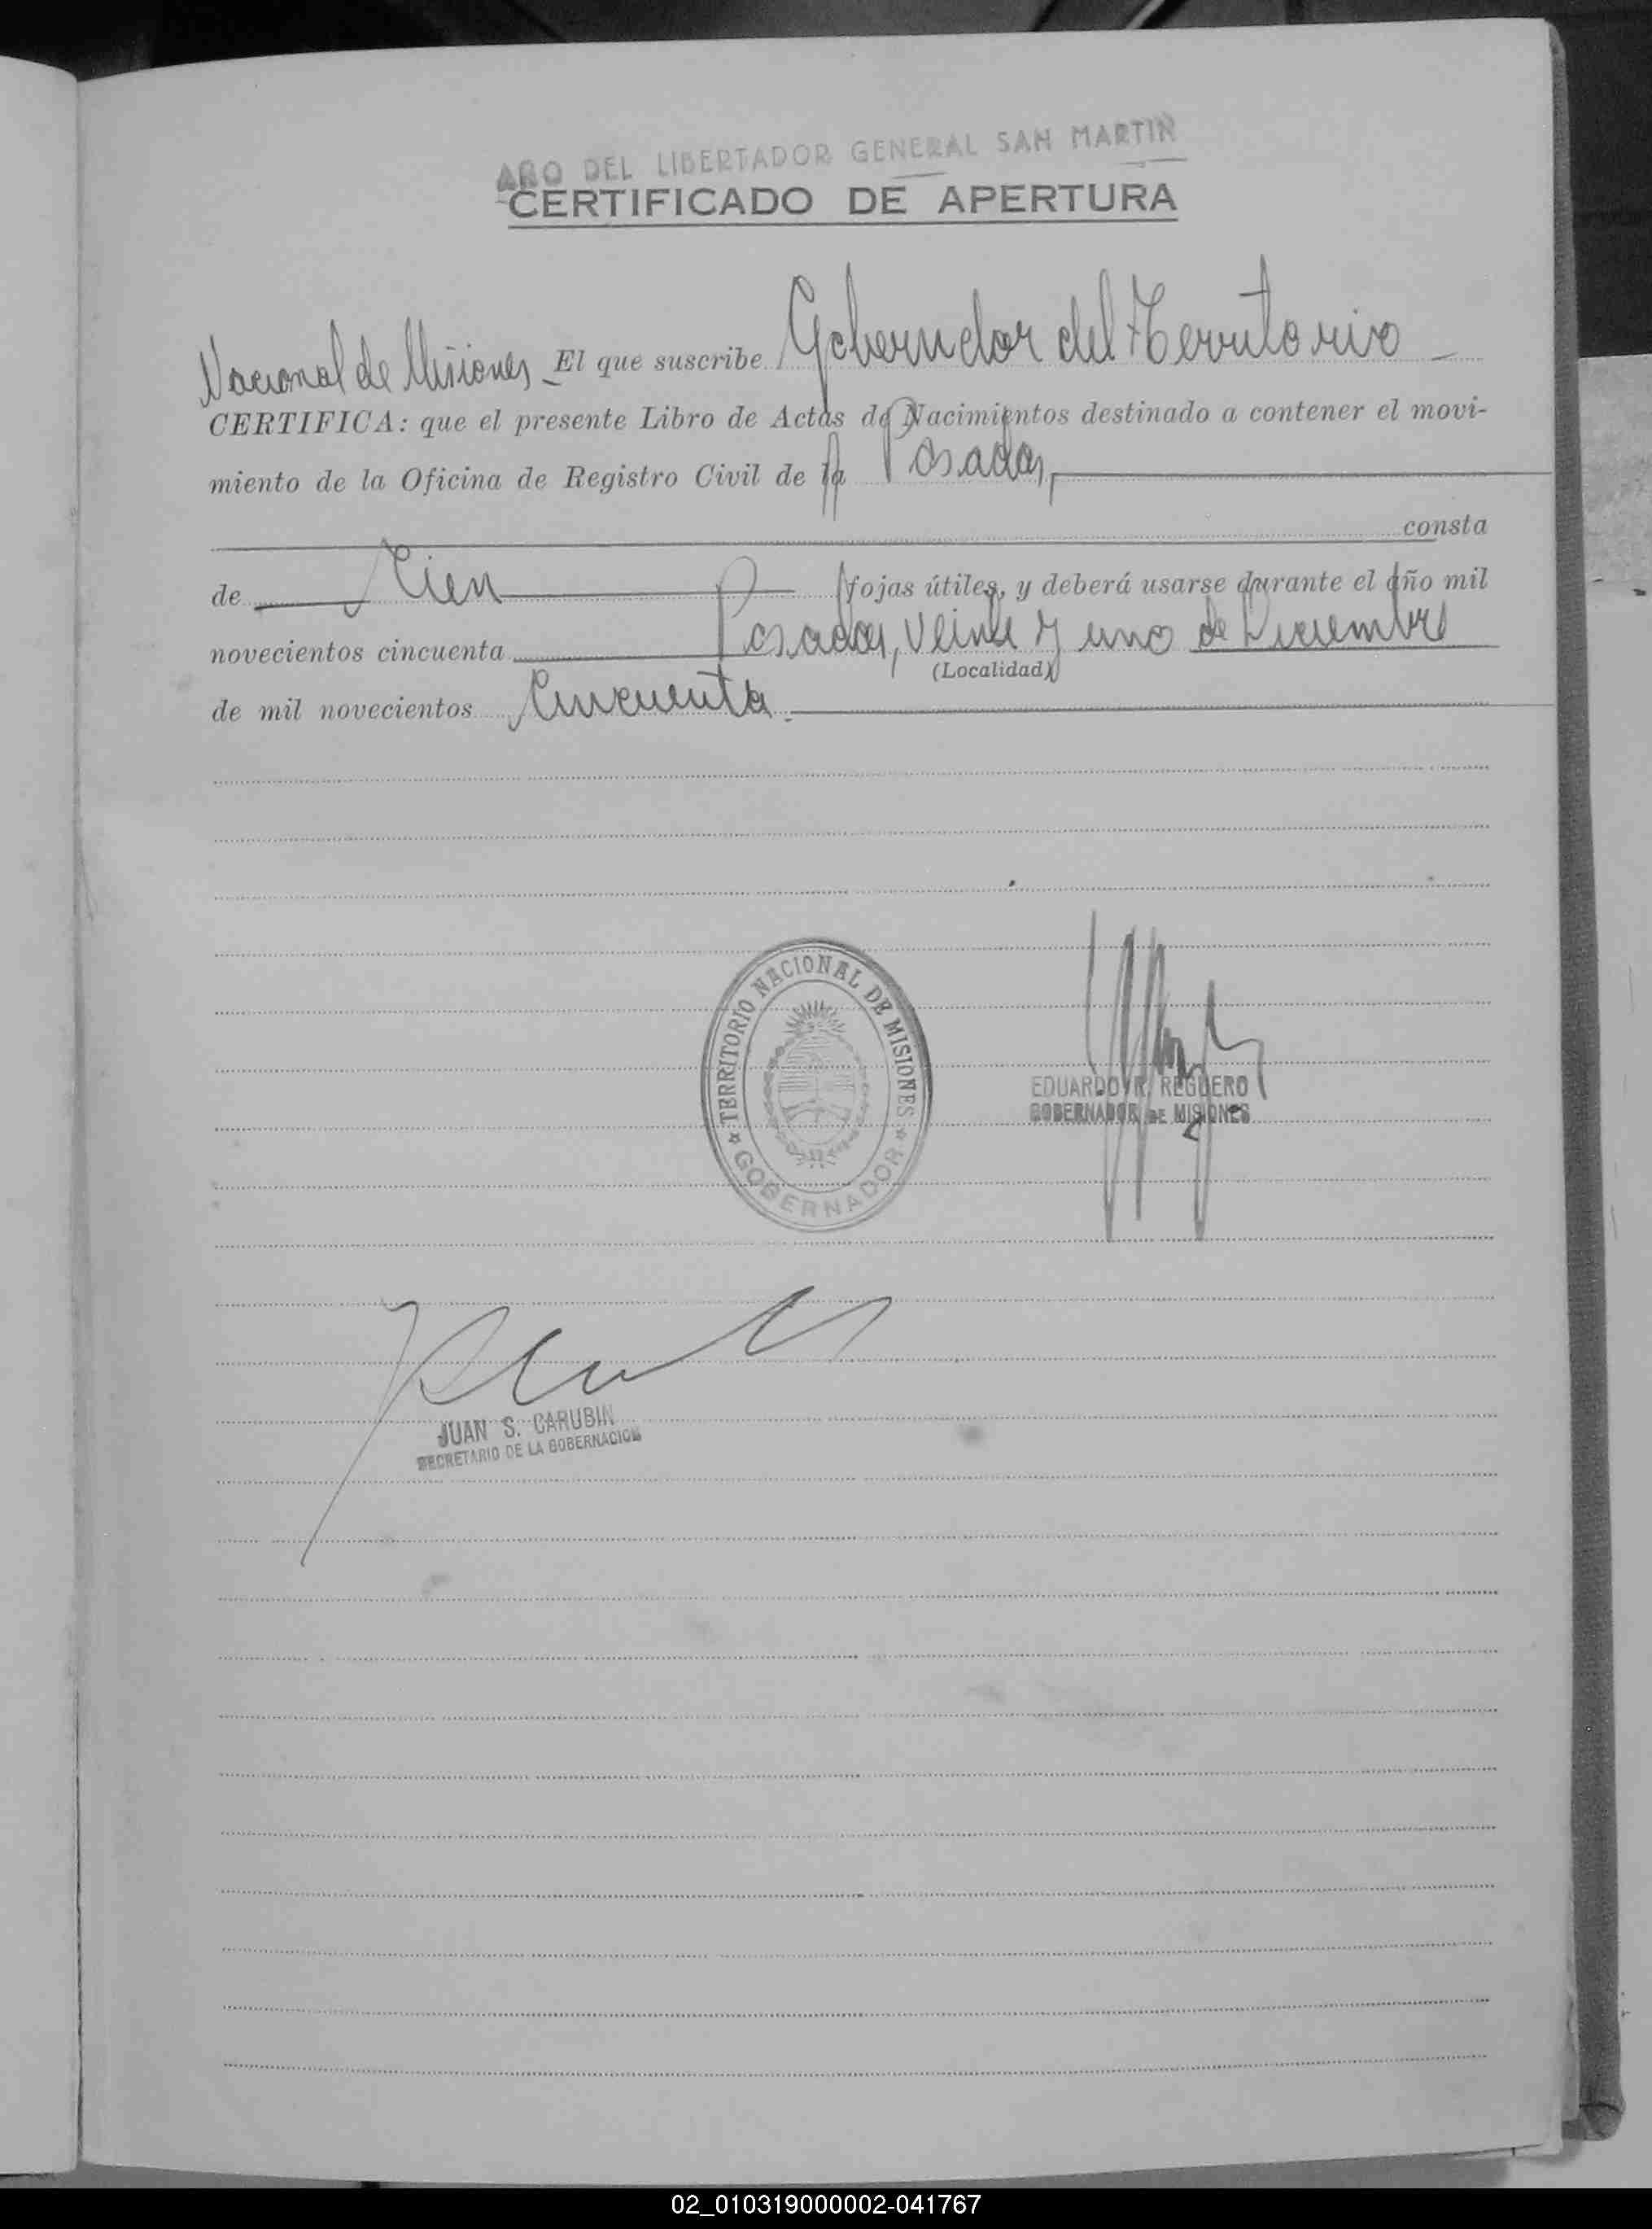 AÑO DEL LIBERTADOR GENERAL SAN MARTIN
CERTIFICADO DE APERTURA
Nacional de Misiones_El que suscribe Goberndor del Territorio
CERTIFICA: que el presente Libro de Actas de Nacimientos destinado a contener el movi-
miento de la Oficina de Registro Civil de la Posadas,
consta
de Cien fojas útiles, y deberá usarse durante el año mil
novecientos cincuenta Posadas, veinte y uno de Diciembre
(Localidad)
de mil novecientos Cincuenta.
TERRITORIO NACIONAL DE MISIONES
GOBERNADOR
EDUARDO R. REGUERO
GOBERNADOR DE MISIONES
JUAN S. CARUBIN
SECRETARIO DE LA GOBERNACION
02_010319000002-041767